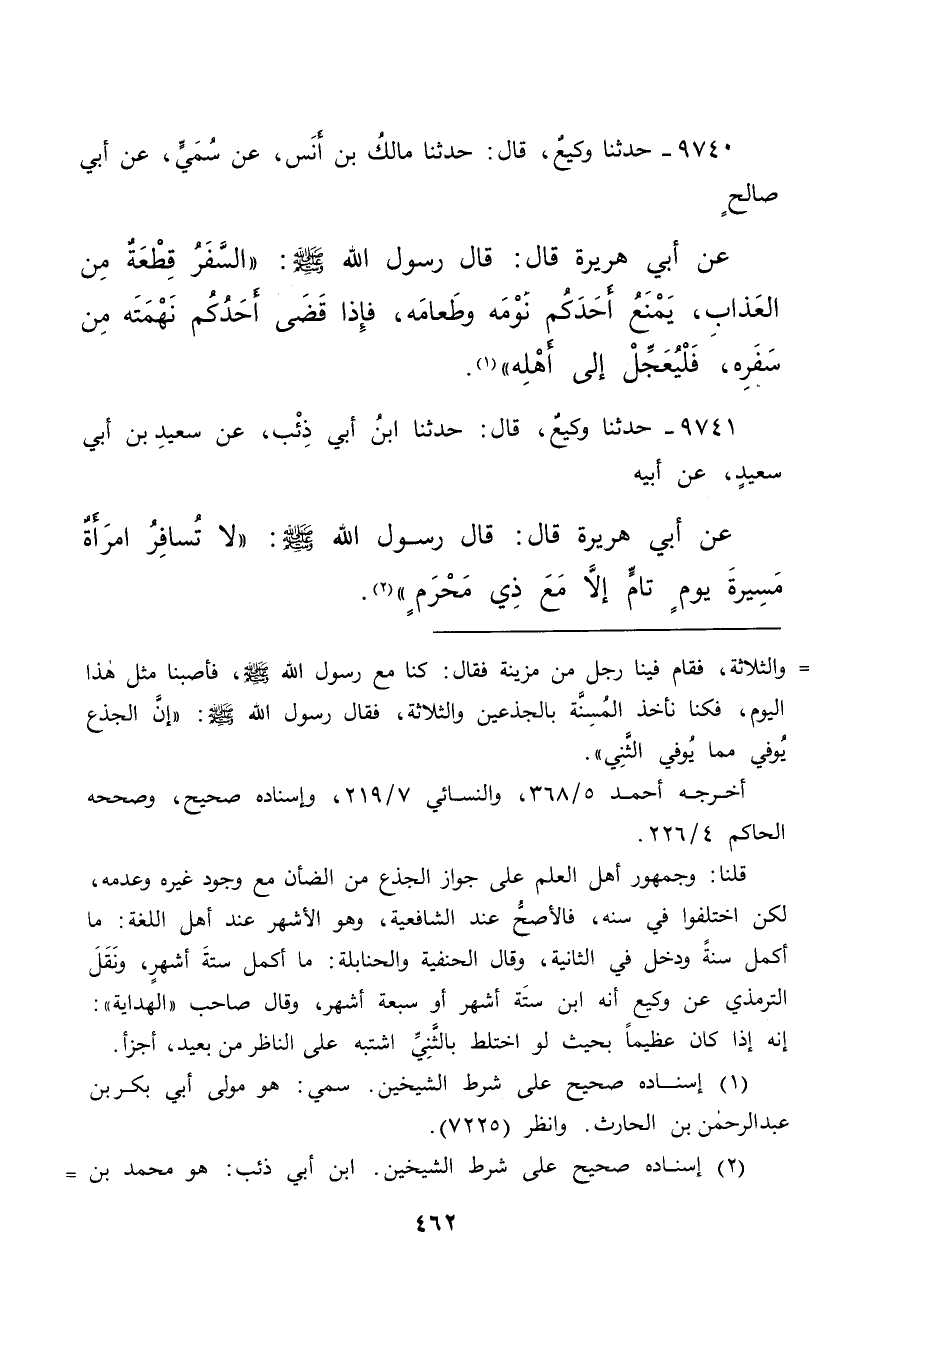 ٩٧٤٠ـ حدثنا وكيعٌ، قال: حدثنا مالكُ بن أَنَس، عن سُمَيٍّ، عن أبي
صالحٍ
عن أبي هريرة قال: قال رسول الله ﷺ: «السَّفَرُ قِطْعَةٌ مِن
العَذابِ، يَمْنَعُ أَحَدَكُم نَوْمَه وطَعامَه، فإِذا قَضَى أَحَدُكُم نَهْمَتَه مِن
سَفَرِه، فَلْيُعَجِّلْ إلى أَهْلِه»(١).
٩٧٤١ـ حدثنا وكيعٌ، قال: حدثنا ابنُ أبي ذِئْب، عن سعيدِ بن أبي
سعيدٍ، عن أبيه
عن أبي هريرة قال: قال رسول الله ﷺ: «لا تُسافِرُ امرَأَةٌ
مَسِيرةَ يومٍ تامٍّ إلَّا مَعَ ذِي مَحْرَمٍ»(٢).
= والثلاثة، فقام فينا رجل من مزينة فقال: كنا مع رسول الله ﷺ، فأصبنا مثل هٰذا
اليوم، فكنا نأخذ المُسِنَّة بالجذعين والثلاثة، فقال رسول الله ﷺ: «إنَّ الجذع
يُوفي مما يُوفي الثَّنِي».
أخرجه أحمد ٣٦٨/٥، والنسائي ٢١٩/٧، وإسناده صحيح، وصححه
الحاكم ٢٢٦/٤.
قلنا: وجمهور أهل العلم على جواز الجذع من الضأن مع وجود غيره وعدمه،
لكن اختلفوا في سنه، فالأصحُّ عند الشافعية، وهو الأشهر عند أهل اللغة: ما
أكمل سنةً ودخل في الثانية، وقال الحنفية والحنابلة: ما أكمل ستةَ أشهرٍ، ونَقَلَ
الترمذي عن وكيع أنه ابن ستَة أشهر أو سبعة أشهر، وقال صاحب «الهداية»:
إنه إذا كان عظيماً بحيث لو اختلط بالثَّنِيِّ اشتبه على الناظر من بعيد، أجزأ.
(١) إسناده صحيح على شرط الشيخين. سمي: هو مولى أبي بكر بن
عبدالرحمٰن بن الحارث. وانظر (٧٢٢٥).
(٢) إسناده صحيح على شرط الشيخين. ابن أبي ذئب: هو محمد بن =
٤٦٢